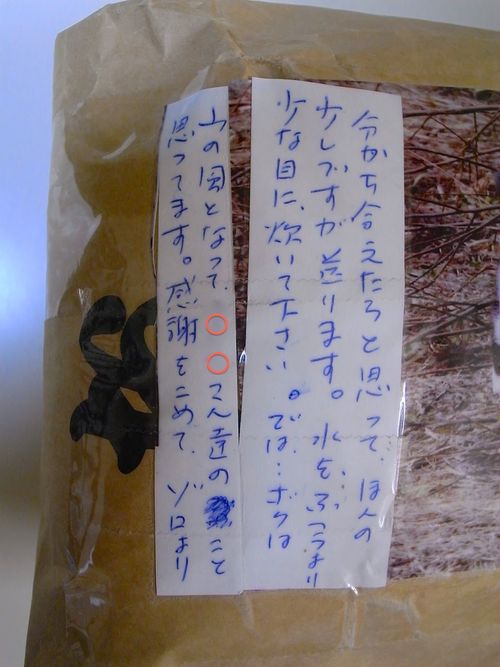 分かち合えたらと思って ほんの
少しですが送ります。水をふつうより
少な目に、炊いて下さい。では…ボクは
山の風となって、○○さん達のこと
思ってます。感謝をこめて、ゾロより